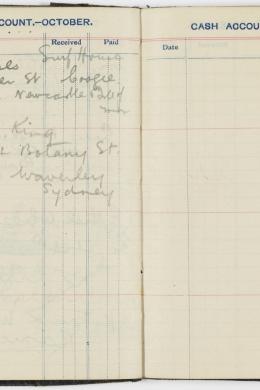 COUNT.—OCTOBER.
Received Paid
Surf House
St Coogee
Newcastle
King
Botany St.
Waverley
Sydney
CASH ACCOU
Date